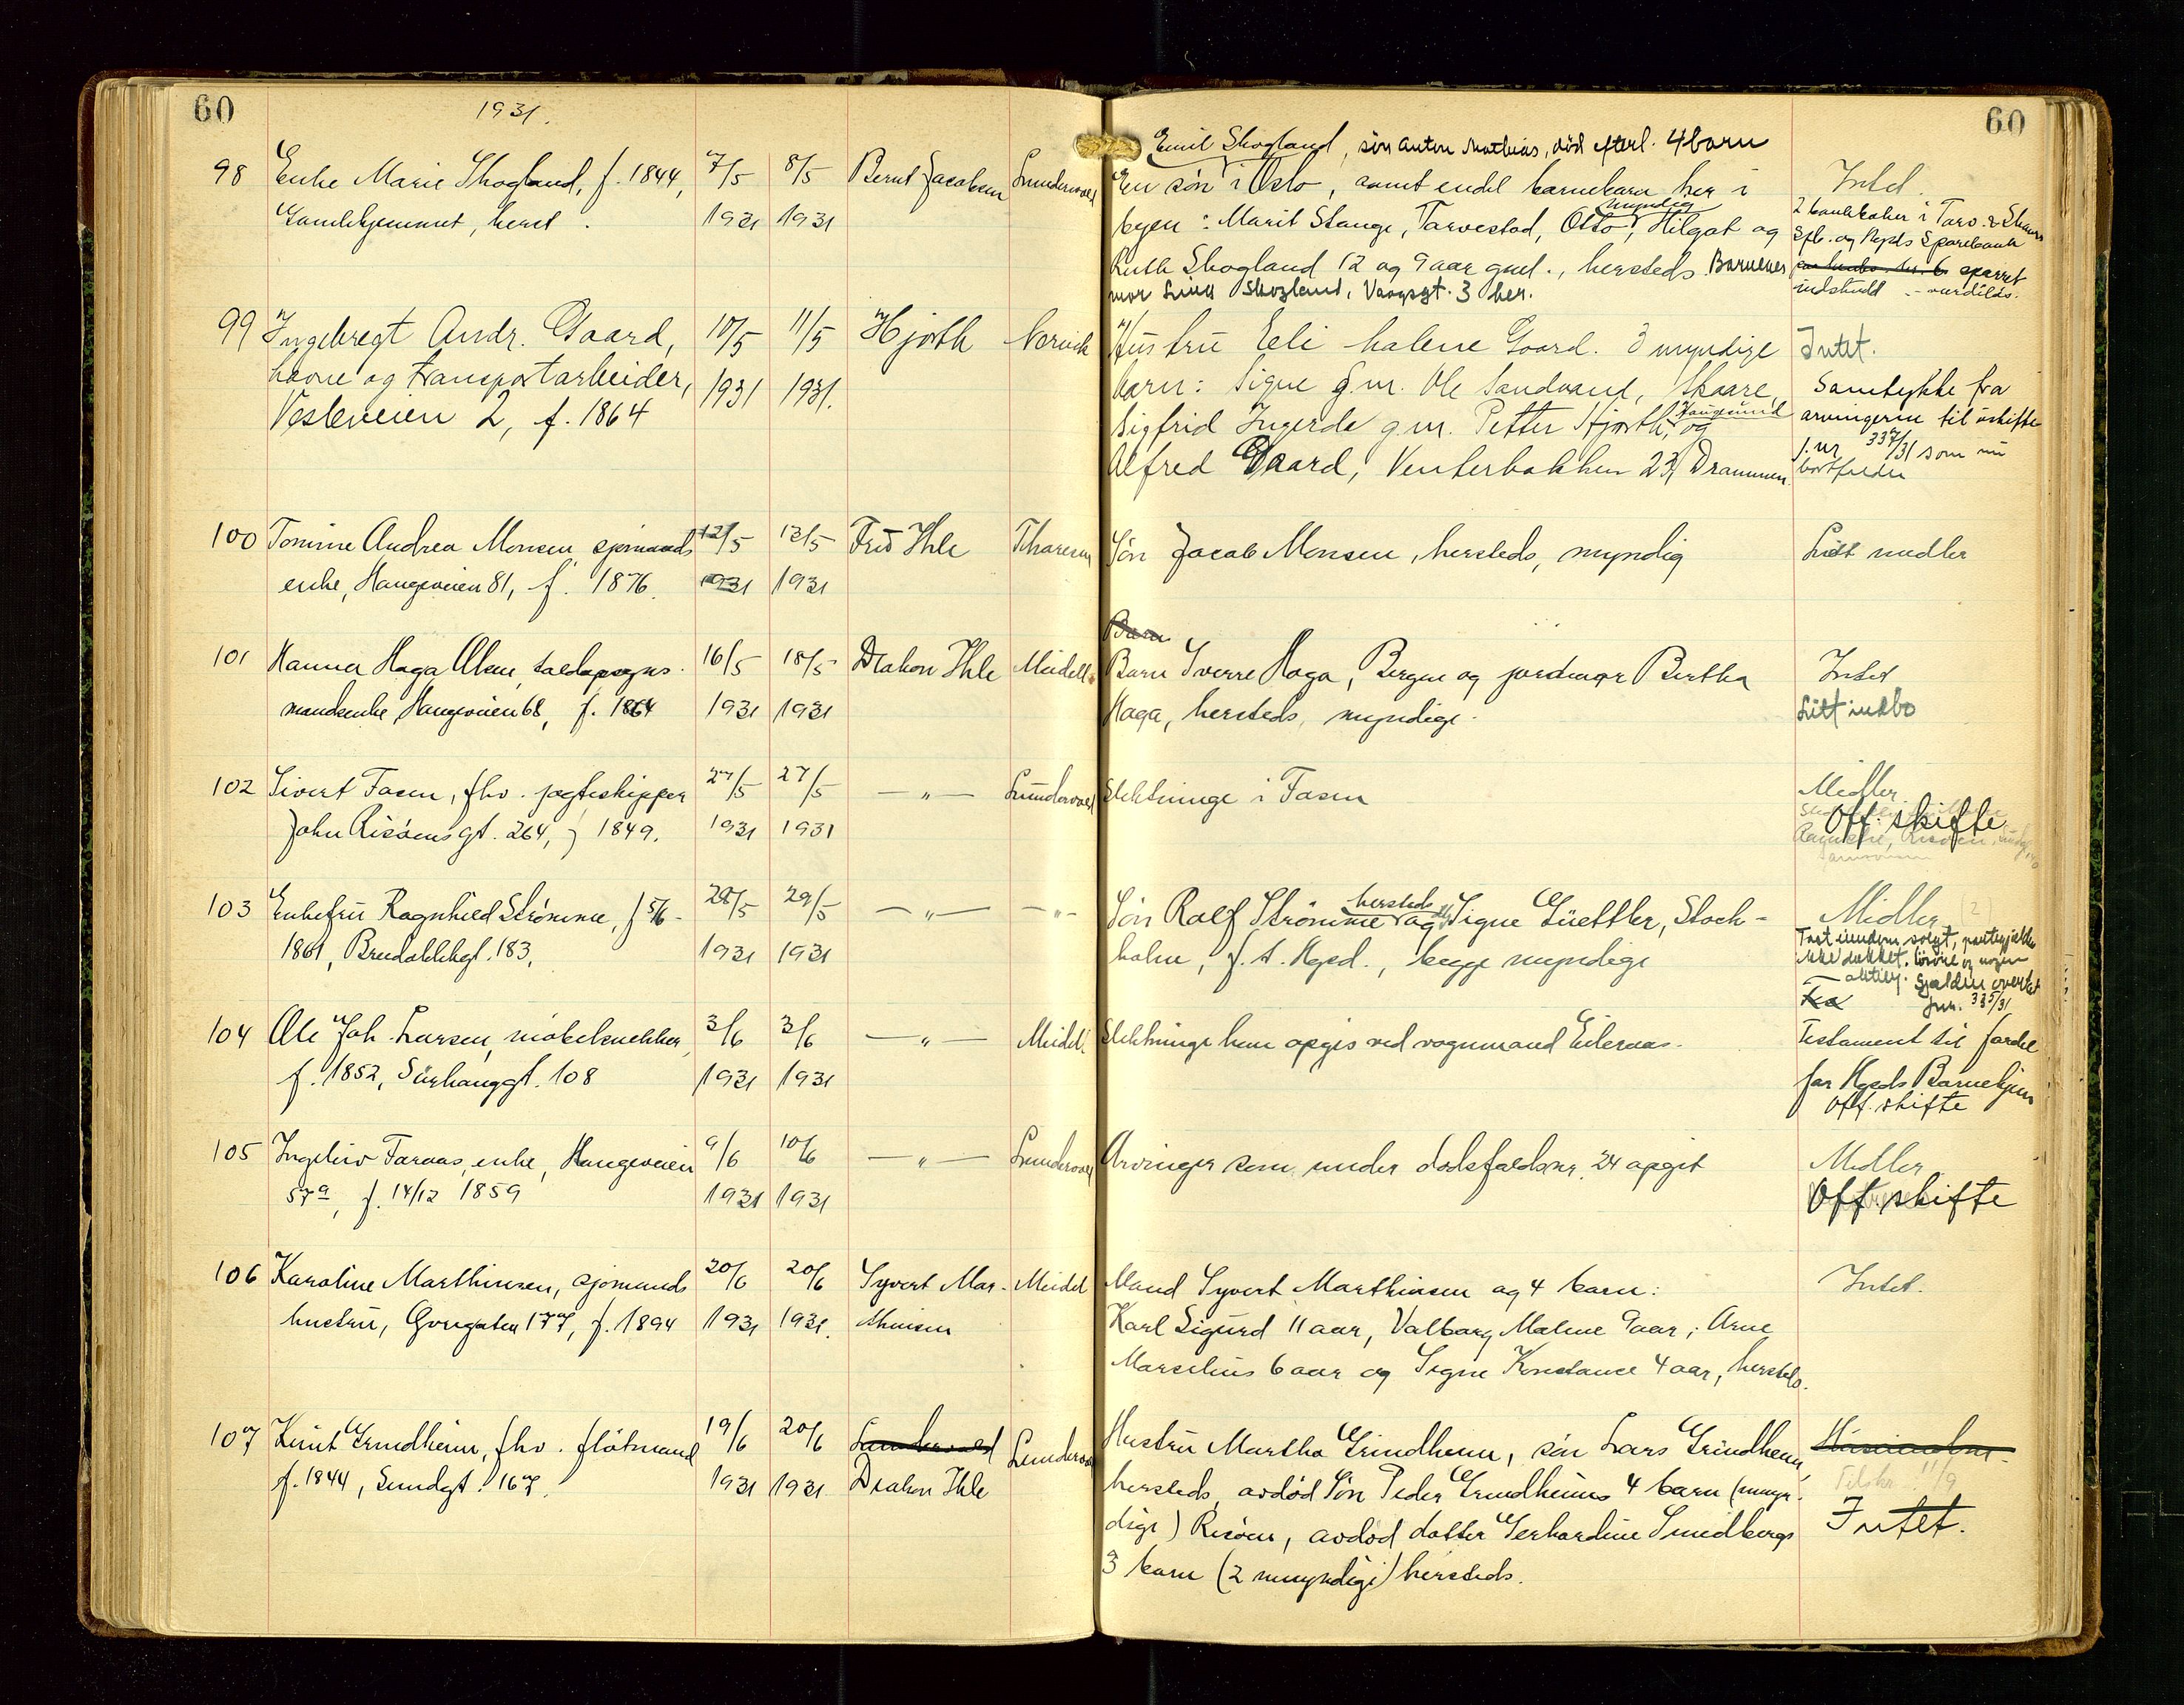 60
1931.
60
98 Enke Marie Skogland, f. 1844, 7/5 8/5 Bernt Jacobsen Lundervold
Gamlehjemmet, herst. 1931 1931
Emil Skogland, søn Anton Mathias, død efterl. 4 barn
En søn i Oslo, samt endel barnebarn her i
byen: Marit Stange, Tarvestad, Otto, myndig Hilgot og
Ruth Skogland 12 og 9 aar gml., hersteds. Barnenes
mor Skogland, Vaagsgt. 3 her.
Intet.
2 bankbøker i Torv. & Skaare
Spb. og Hgsds Sparebank
sparret
indskudt
99 Ingebregt Andr. Gaard, 10/5 11/5 Hjorth Norvik
havne og transportarbeider, 1931 1931.
Vesleveien 2, f. 1864
Hustru Eli Malene Gaard. 3 myndige
barn: Signe g.m. Ole Sandvand, Skaare,
Sigfrid Ingerda g.m. Petter Hjorth, Haugesund og
Alfred Gaard, Venterbakken 23, Drammen.
Intet.
Samtykke fra
arvingerne til uskifte
j. nr 337/31 som nu
bortfalder
100 Tomine Andrea Monsen sjømands 12/5 13/5 Frid Ihle Thoresen
enke, Haugeveien 81, f. 1876. 1931 1931
Søn Jacob Monsen, hersteds, myndig
Lidt midler
Barn
101 Hanna Haga Olsen, toldopsyns- 16/5 18/5 Diakon Ihle Meidell
mandsenke, Haugeveien 68, f. 1864 1931 1931
Barn Sverre Haga, Bergen og jordmor Bertha
Haga, hersteds, myndige.
Intet
Litt indbo
102 Sivert Fosen, fhv. jagteskipper 27/5 27/5 —„— Lundervold
John Risøens gt. 264, f 1849. 1931 1931
Slektninge i Fosen
Midler.
Off. skifte
103 Enkefru Ragnhild Strømme, f 5/6- 28/5 29/5 —„— -„-
1861, Breidablikgt. 183, 1931 1931
Søn Ralf Strømme hersteds og Signe Güettler, Stock-
holm, f. t. Hgsd., begge myndige
Midler
Fast eiendom solgt, pantegjelden
ikke dekket, løsøre og nogen
aktier. Gjelden overtat
Jnr. 335/31
104 Ole Joh. Larsen, møbelsnekker, 3/6 3/6 —„— Meidell
f. 1852, Sørhauggt. 108 1931 1931
Slektninge kan opgis ved vognmand Eikeraas.
Testament til fordel
for Hgsds Barnehjem
Off. skifte
105 Ingeliv Faraas, enke, Haugeveien 9/6 10/6 —„— Lundervold
57a, f. 14/12 1859 1931 1931
Arvinger som under dødsfaldsnr. 24 opgit
Midler.
Off. skifte
106 Karoline Marthinsen, sjømands 20/6 20/6 Syvert Mar- Meidel
hustru, Gongaten 177, f. 1894 1931 1931. thinsen
Mand Syvert Marthinsen og 4 barn:
Karl Sigurd 11 aar, Valborg Malene 9 aar, Arne
Marselius 6 aar og Signe Konstance 4 aar, hersteds.
Intet.
107 Knut Grindheim, fhv. fløtmand 19/6 20/6 Lundervold Lundervold
f. 1844, Sundgt. 167. 1931 1931 Diakon Ihle
Hustru Martha Grindheim, søn Lars Grindheim,
hersteds, avdød Søn Peder Grindheims 4 barn (myn-
dige) Risøen, avdød datter Gerhardine Smedbergs
3 barn (2 umyndige) hersteds.
Tilskr. 11/9
Intet.